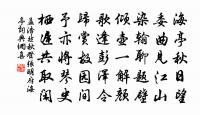 海亭秋日望
委曲見江山
染翰聊題壁
傾壺一解顏
歌逢彭澤令
歸賞故園間
予亦將琴史
栖遲共取閑
孟浩然秋登張明府海
亭詞典網